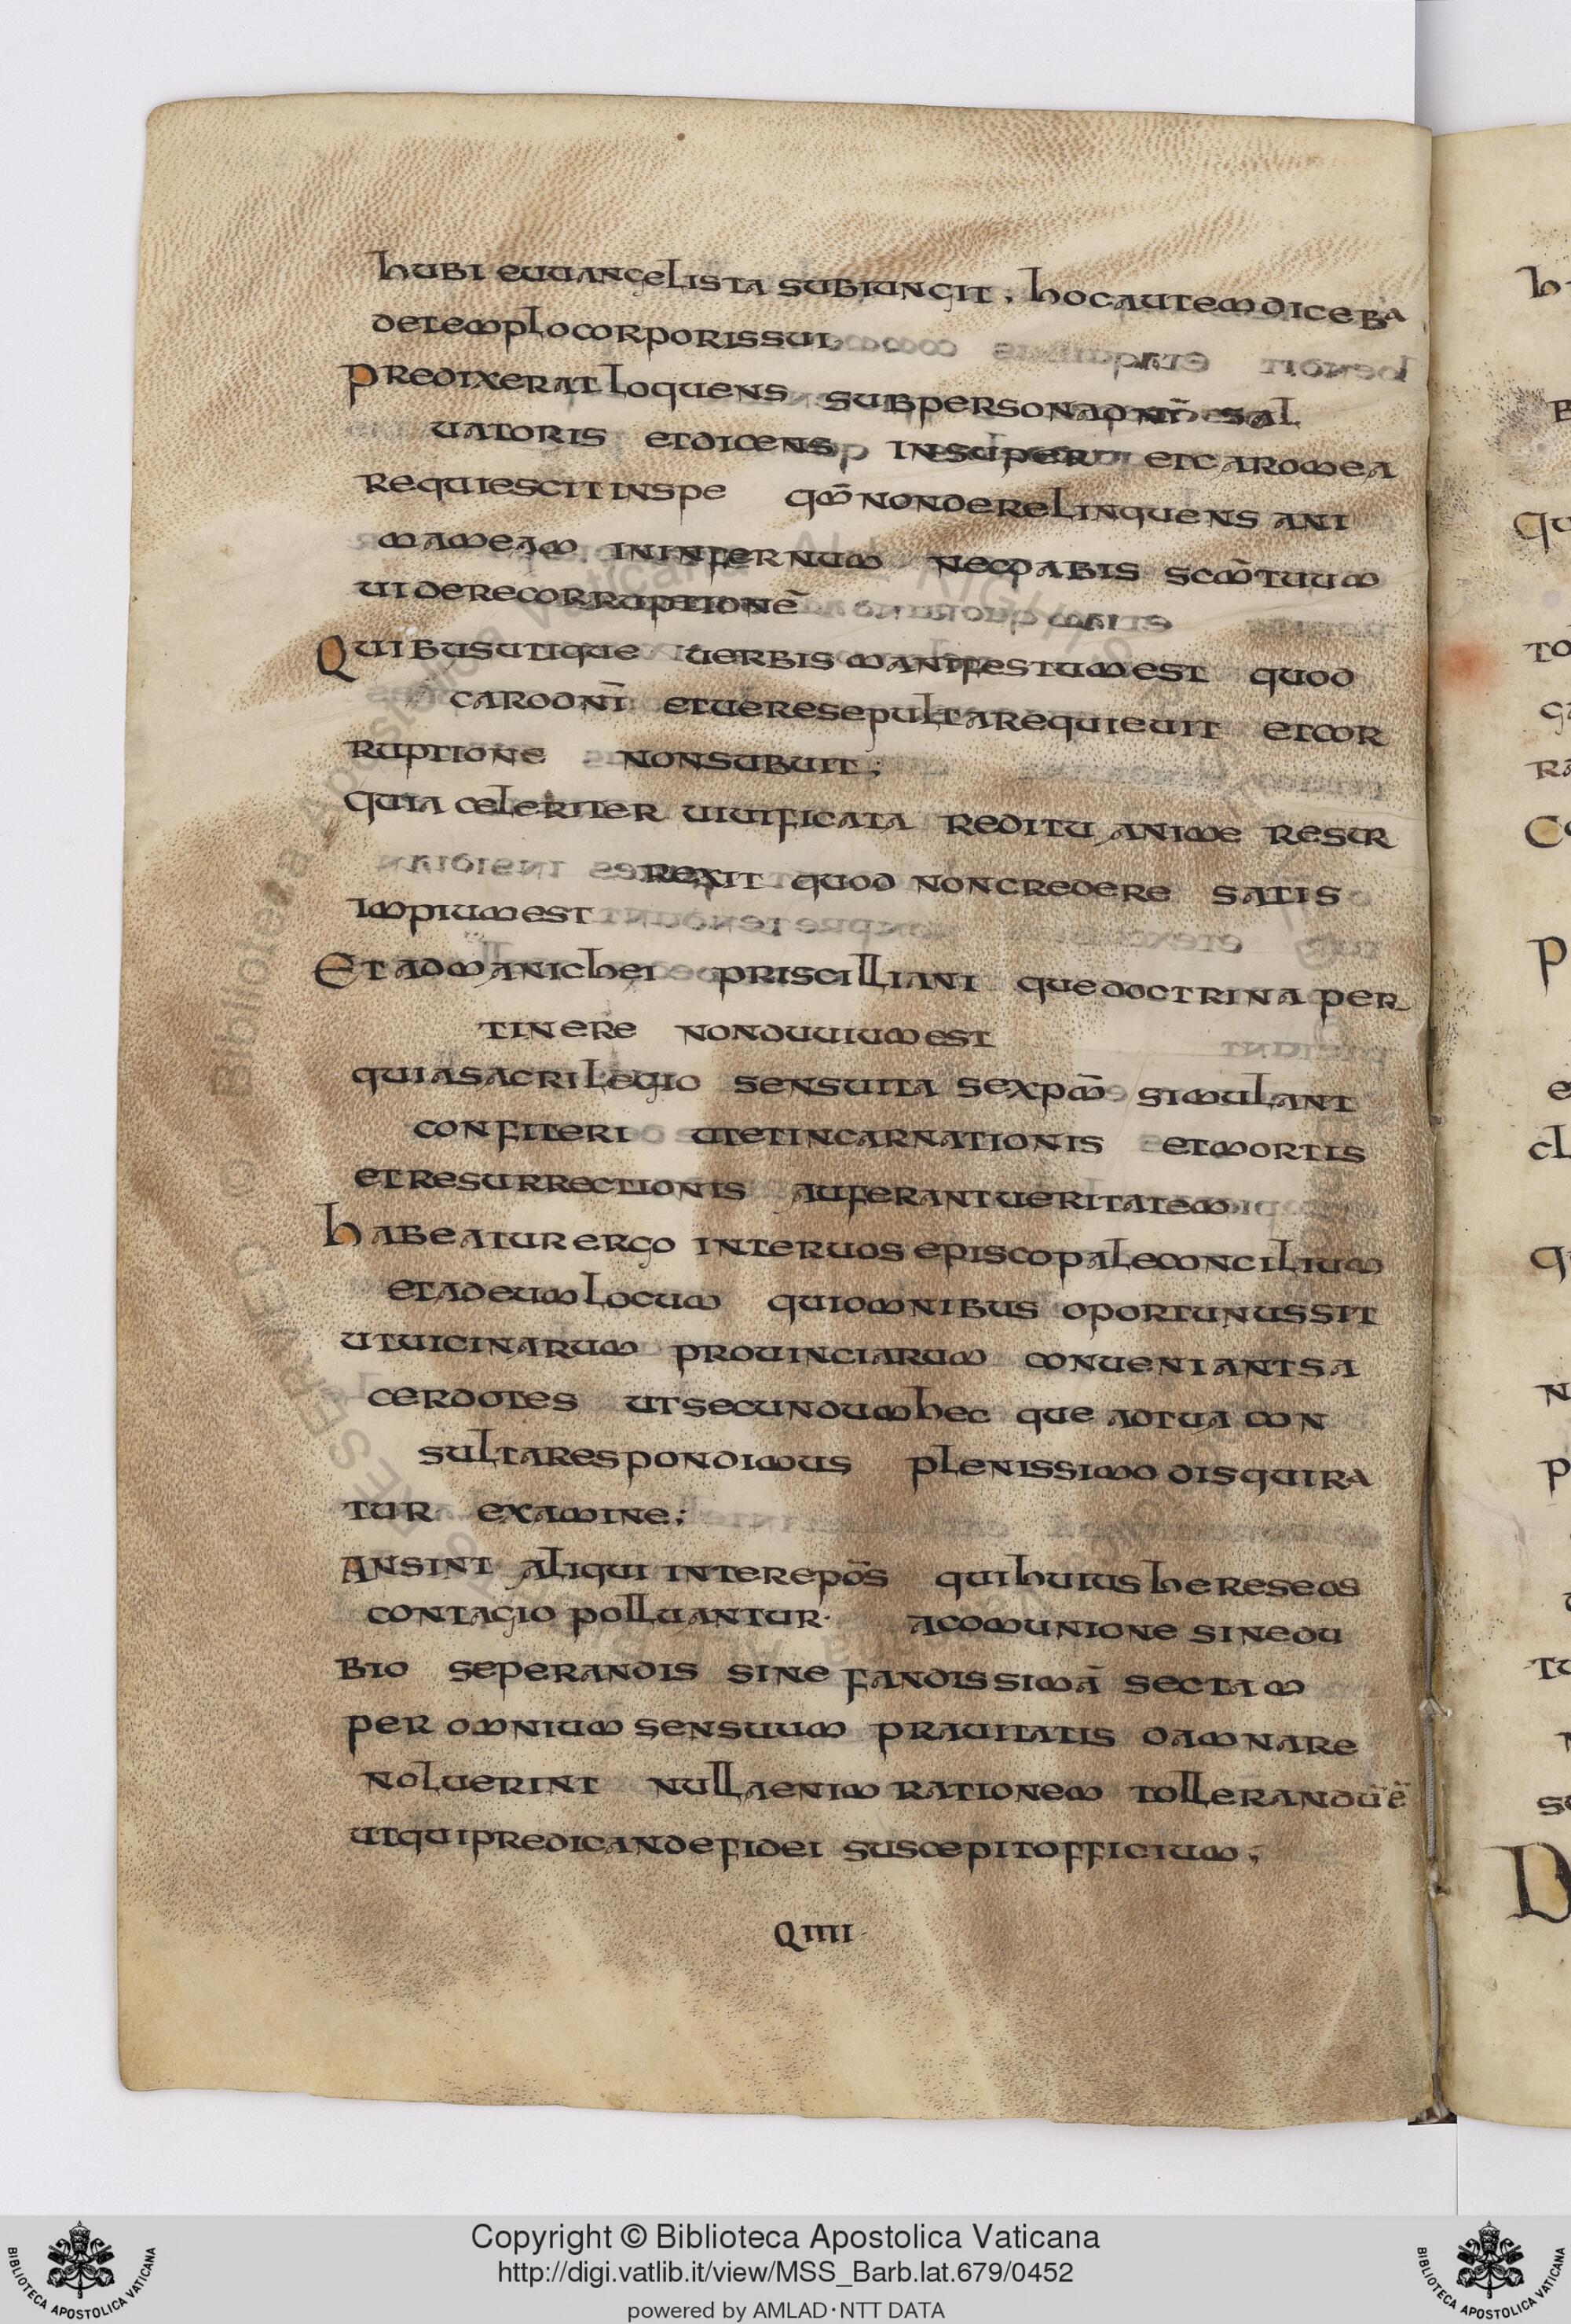 hubi euuangelista subiungit; hoc autem diceba
de templo corporis sui
Predixerat loquens sub persona dnī sal
uatoris et dicens insuper et caro mea
requiescit in spe qm̄ non derelinquens ani
ma meam in infernum nec dabis scm̄ tuum
uidere corruptionē
Quibus utique uerbis manifestum est quod
caro dnī et uere sepulta requieuit et cor
ruptione non subuit;
quia celeriter uiuificata reditu anime resur
rexit quod non credere satis
impium est
Et ad manichei priscilliani que doctrina per
tinere non duuium est
quia sacrilegio sensu ita s expm̄ simulant
confiteri ut et incarnationis et mortis
et resurrectionis auferant ueritatem
habeatur ergo inter uos episcopale concilium
et ad eum locum qui omnibus oportunus sit
ut uicinarum prouinciarum conueniant sa
cerdotes ut secundum hec que ad tua con
sulta respondimus plenissimo disquira
tur examine;
An sint aliqui inter epōs qui huius hereseos
contagio polluantur· a comunione sine du
bio seperandis si nefandissimā sectam
per omnium sensuum prauitatis damnare
noluerint nulla enim rationem tollerandū ē
ut qui predicande fidei suscepit officium;
Q IIII
Copyright © Biblioteca Apostolica Vaticana
http://digi.vatlib.it/view/MSS_Barb.lat.679/0452
powered by AMLAD·NTT DATA
BIBLIOTECA APOSTOLICA VATICANA
BIBLIOTECA APOSTOLICA VATICANA